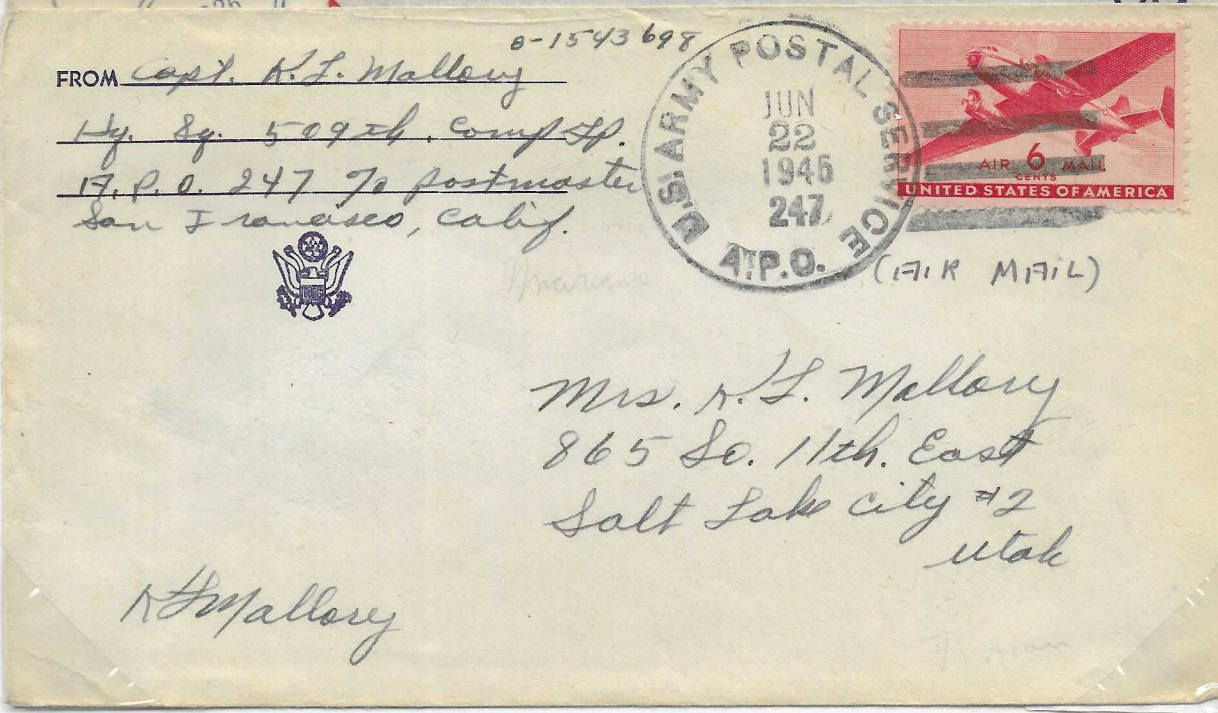 0-1543698
FROM Capt. K. L. Mallory
Hq. Sq. 509th. Comp Gp.
A.P.O. 247 c/o postmaster
San Francisco, Calif.
U.S. ARMY POSTAL SERVICE
JUN
22
1945
247
A.P.O.
AIR 6 MAIL
CENTS
UNITED STATES OF AMERICA
(AIR MAIL)
Mrs. K. L. Mallory
865 So. 11th. East
Salt Lake City #2
Utah
K L Mallory
Tinian